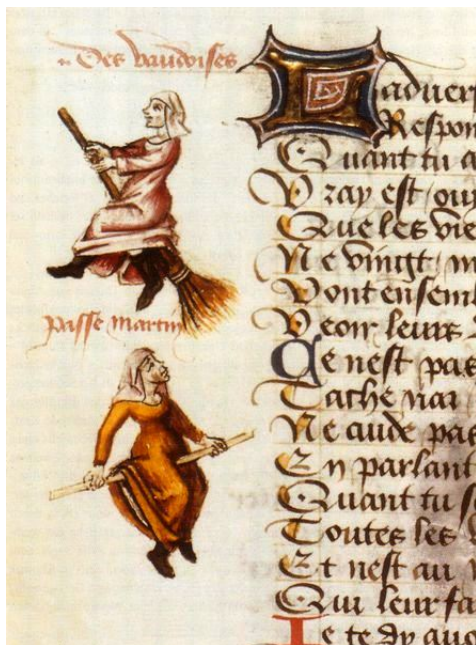 Des vaudoises
Laduer
Respon
Quant tu a
Vray est / ouy
Que les vie
Ne vingt / m
Vont ensem
passe martin
Veoir leurs
Ce nest pas
Tache nai
Ne aude pas
En parlant
Quant tu s
Toutes les
Et nest au
Qui leur fa
Je te dy auo